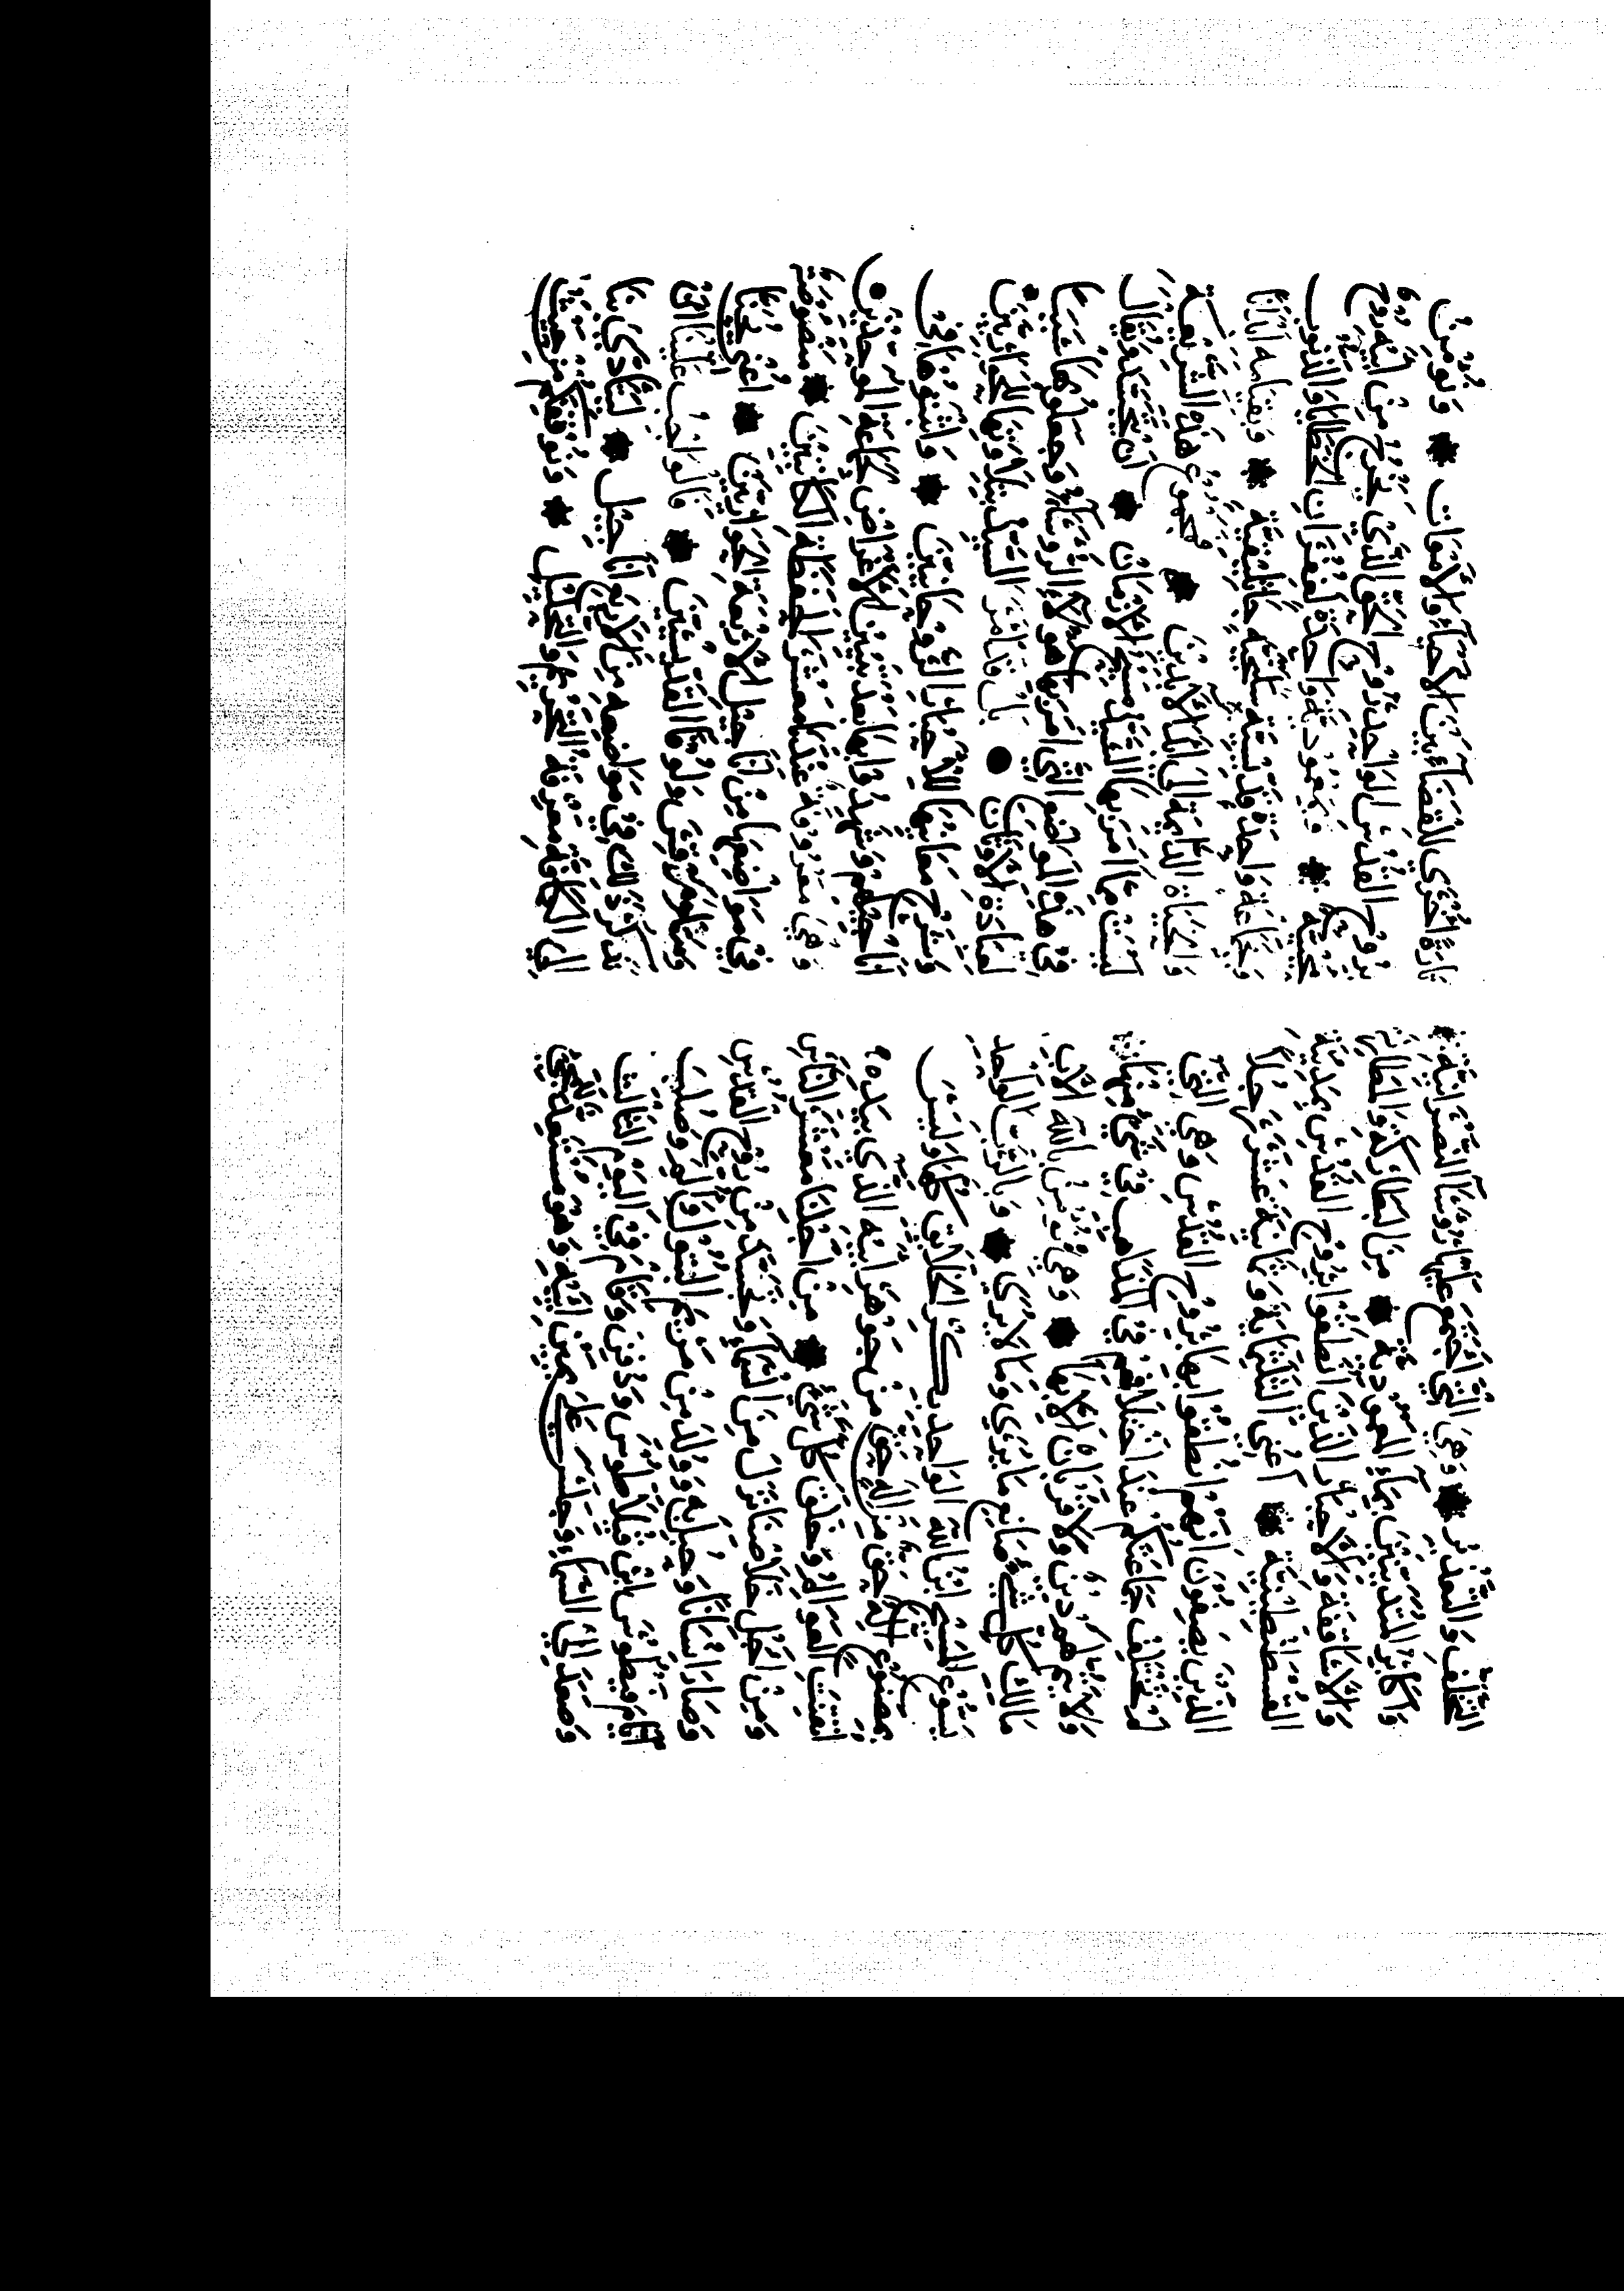 الخُلف والتعذير وهي التي اجتمع عليها رؤسآ النصرانيّه
وأكابر المتدينين بمآء المعموديّة من البطاركة والمطارنة
والاساقفة والاحبار الذين انطقوا بروح القدس بمدينة
القسطنطينيّة اعني الثلثماية وثمانية عشر رجلاً
الذين يصفون انهم انطقوا بها بروح القدس وهي التي
لم تختلف جماعتكم عند اختلافهم في المذاهب في شيء منها
ولا يتم لهم دين ولا قربان الا بها وهي نؤمن بالله الاب
مالك كل شيء صانع ما يرى وما لا يرى وبالرب الواحد
يسوع المسيح ابن الله الواحد بكر الخلائق كلها وليس
بمصنوع اله حق من اله حق من جوهر ابيه الذي بيده
اتقنت العوالم وخلق كل شيء من اجلنا معشر الناس
ومن اجل خلاصنا نزل من السمآء وتجسد من روح القدس
وصار انسانًا وحبل به وولد من مريم البتول والم وصلب
ايام فيطوس ابن فيلاطوس ودفن وقام في اليوم الثالث
وصعد الى السمآء وجلس على يمين ابيه وهو مستعد للمجي
تارة اخرى للقضآء بين الاحيآء والاموات ونومن
بروح القدس الواحد روح الحق الذي يخرج من ابيه روح
محييه وبمعموديّة واحدة لغفران الخطايا والذنوب
وبجماعة واحدة قديسيّة سليحيّة جاثليقيّة وبقيامة ابداننا
والحياة الدايمة الى ابد الابدين ومجموع هذه الشريعة
ليست مما امر بها السيد المسيح ويقال
في هذه المواضع التي امر بها هولاي الروسآء وجعلوها سببا
لعبادة الاوثان بل فامر السيد بتلاوتها الحواريين
وشرح معانيها الروحانيين واثبتوها في
اناجيلهم بعد سنين لاغراض كلمة الموحدين
وهي عندنا معشر الحفظة الكاتبين منصوصة
في مواضعها من اناجيل الاربعة الحواريين اعني يحنا
ومتا ومرقش ولوقا القديسين فالواجب علينا ان
نذكر ذلك في مواضعه من الاربع اناجيل
الى الكافه معرفة التحريم والتحليل ونوقفهم من حيث